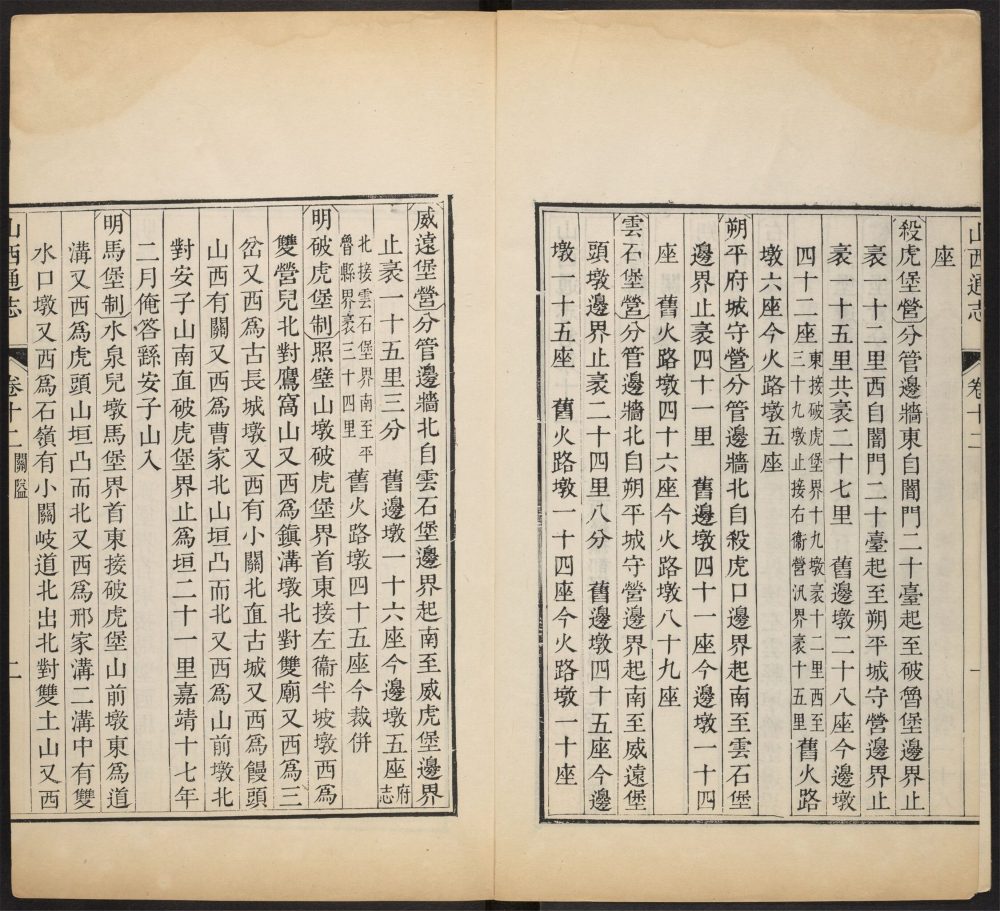 山西通志 卷十二 一
座
殺虎堡營分管邊牆東自闇門二十臺起至破魯堡邊界止
袤一十二里西自闇門二十臺起至朔平城守營邊界止
袤一十五里共袤二十七里 舊邊墩二十八座今邊墩
四十二座東接破虎堡界十九墩袤十二里西至三十九墩止接右衞營汛界袤十五里舊火路
墩六座今火路墩五座
朔平府城守營分管邊牆北自殺虎口邊界起南至雲石堡
邊界止袤四十一里 舊邊墩四十一座今邊墩一十四
座 舊火路墩四十六座今火路墩八十九座
雲石堡營分管邊牆北自朔平城守營邊界起南至威遠堡
頭墩邊界止袤二十四里八分 舊邊墩四十五座今邊
墩一十五座 舊火路墩一十四座今火路墩一十座
威遠堡營分管邊牆北自雲石堡邊界起南至威虎堡邊界
止袤一十五里三分 舊邊墩一十六座今邊墩五座府志
北接雲石堡界南至平魯縣界袤三十四里 舊火路墩四十五座今裁併
明破虎堡制照壁山墩破虎堡界首東接左衞半坡墩西爲
雙營兒北對鷹窩山又西爲鎭溝墩北對雙廟又西爲三
岔又西爲古長城墩又西有小關北直古城又西爲饅頭
山西有關又西爲曹家北山垣凸而北又西爲山前墩北
對安子山南直破虎堡界止爲垣二十一里嘉靖十七年
二月俺答繇安子山入
明馬堡制水泉兒墩馬堡界首東接破虎堡山前墩東爲道
溝又西爲虎頭山垣凸而北又西爲邢家溝二溝中有雙
水口墩又西爲石嶺有小關岐道北出北對雙土山又西
山西通志 卷十二 關隘 二